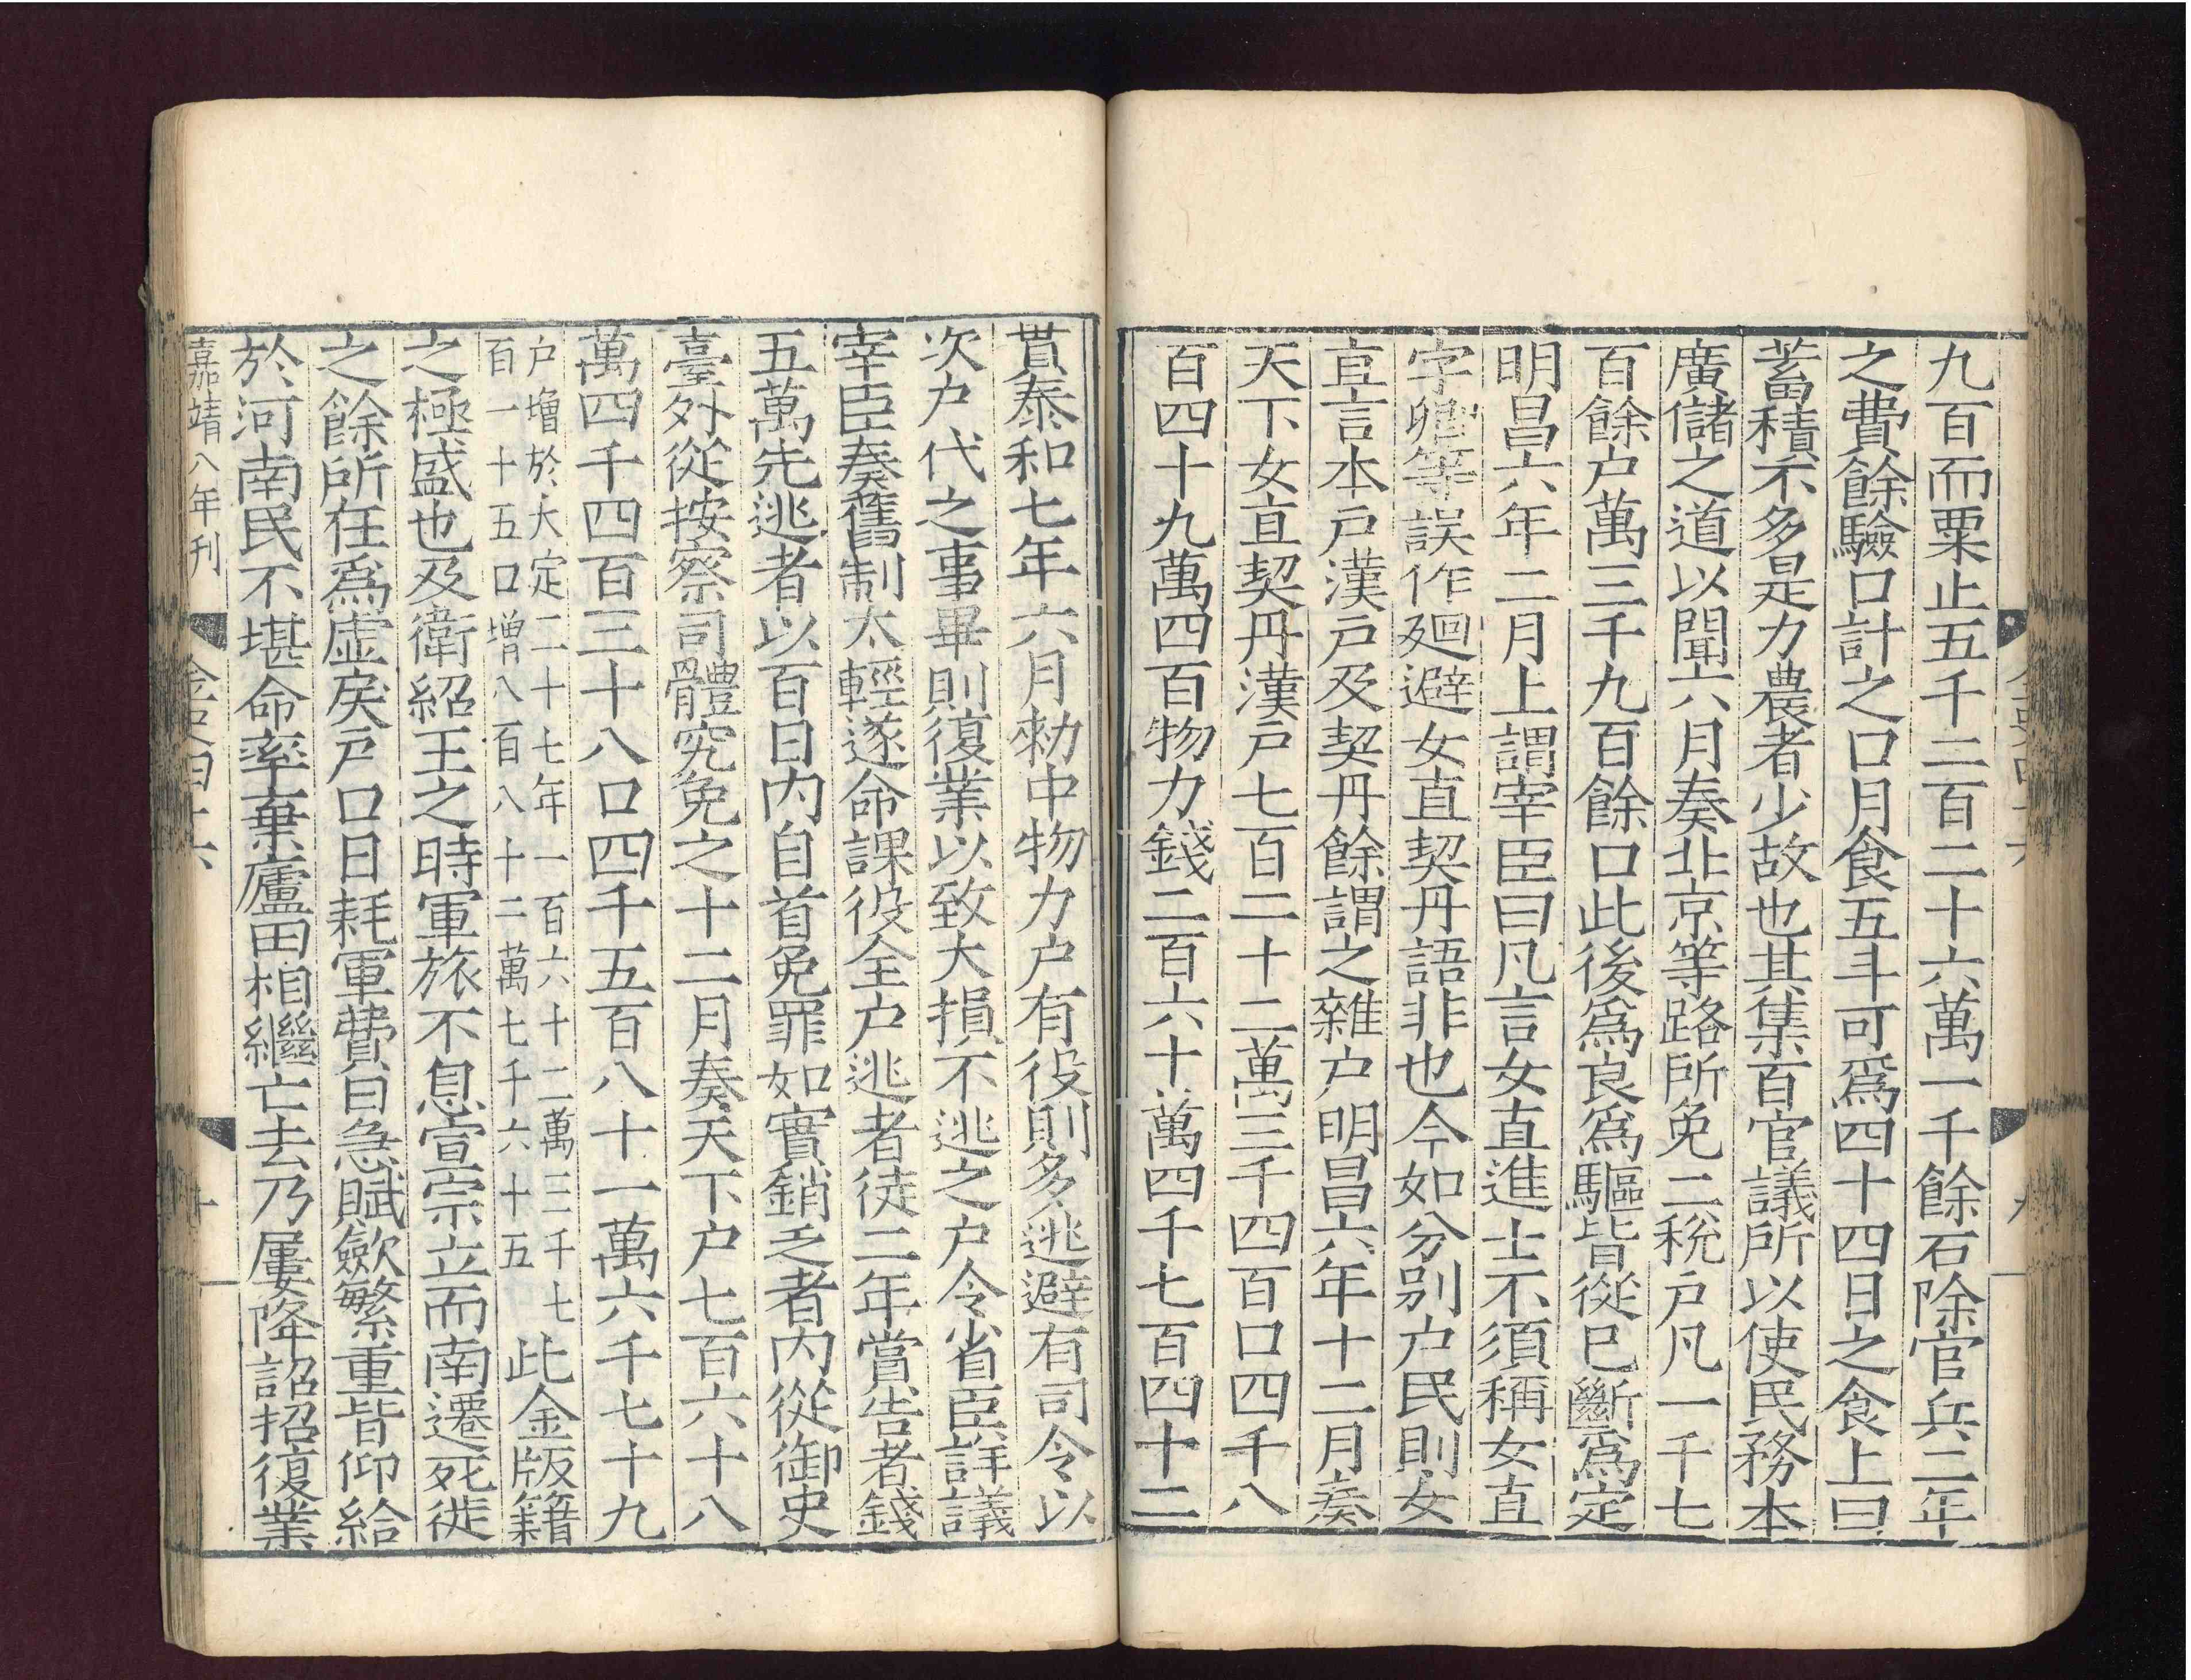 九百而粟止五千二百二十六萬一千餘石除官兵二年
之費餘驗口計之口月食五斗可爲四十四日之食上曰
蓄積不多是力農者少故也其集百官議所以使民務本
廣儲之道以聞六月奏北京等路所免二稅戸凡一千七
百餘户萬三千九百餘口此後爲良爲驅皆從已斷爲定
明昌六年二月上謂宰臣曰凡言女直進士不須稱女直
字卿等誤作廻避女直契丹語非也今如分别户民則女
直言本戸漢戸及契丹餘謂之雜户明昌六年十二月奏
天下女直契丹漢戸七百二十二萬三千四百口四千八
百四十九萬四百物力錢二百六十萬四千七百四十二
貫泰和七年六月勑中物力户有役則多逃避有司令以
次户代之事畢則復業以致大損不逃之户令省臣詳議
宰臣奏舊制太輕遂命課役全户逃者徒二年賞告者錢
五萬先逃者以百日内自首免罪如實銷乏者内從御史
臺外從按察司體究免之十二月奏天下户七百六十八
萬四千四百三十八口四千五百八十一萬六千七十九
户增於大定二十七年一百六十二萬三千七
百一十五口增八百八十二萬七千六十五
此金版籍
之極盛也及衛紹王之時軍旅不息宣宗立而南遷死徙
之餘所在爲虚戾戸口日耗軍費日急賦歛繁重皆仰給
於河南民不堪命率棄廬田相繼亡去乃屢降詔招復業
嘉靖八年刊
金史四十六
十